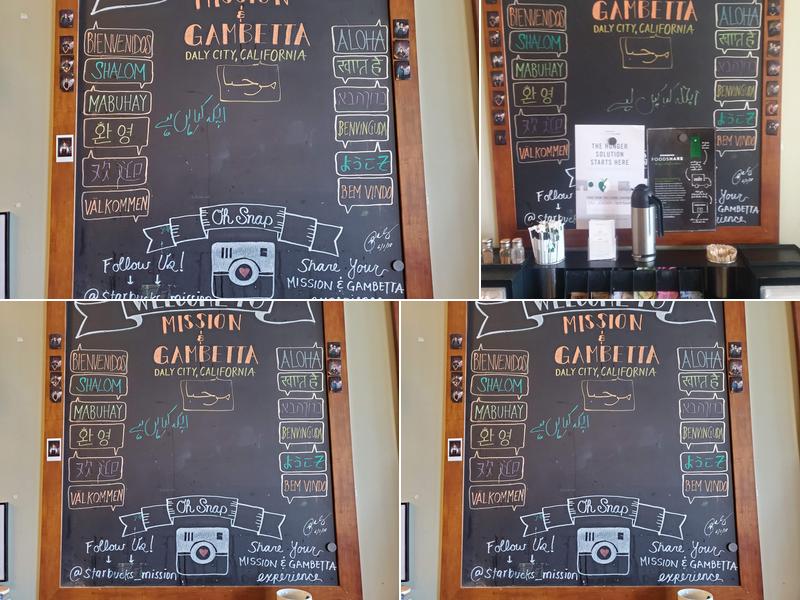 MISSION
&
GAMBETTA
DALY CITY, CALIFORNIA
BIENVENIDOS
SHALOM
MABUHAY
환영
VÄLKOMMEN
مرحبا
ALOHA
BENVINGUDA
ようこそ
BEM VINDO
Oh Snap
Follow Us!
@Starbucks_mission
Share Your
MISSION & GAMBETTA
experience
GAMBETTA
DALY CITY, CALIFORNIA
BIENVENIDOS
SHALOM
MABUHAY
환영
VÄLKOMMEN
مرحبا
ALOHA
BENVINGUDA
ようこそ
BEM VINDO
THE HUNGER
SOLUTION
STARTS HERE
FOODSHARE
Your
GAMBETTA
WELCOME TO
MISSION
&
GAMBETTA
DALY CITY, CALIFORNIA
BIENVENIDOS
SHALOM
MABUHAY
환영
VÄLKOMMEN
مرحبا
ALOHA
BENVINGUDA
ようこそ
BEM VINDO
Oh Snap
Follow Us!
@Starbucks_mission
Share Your
MISSION & GAMBETTA
experience
WELCOME TO
MISSION
&
GAMBETTA
DALY CITY, CALIFORNIA
BIENVENIDOS
SHALOM
MABUHAY
환영
VÄLKOMMEN
مرحبا
ALOHA
BENVINGUDA
ようこそ
BEM VINDO
Oh Snap
Follow Us!
@Starbucks_mission
Share Your
MISSION & GAMBETTA
experience